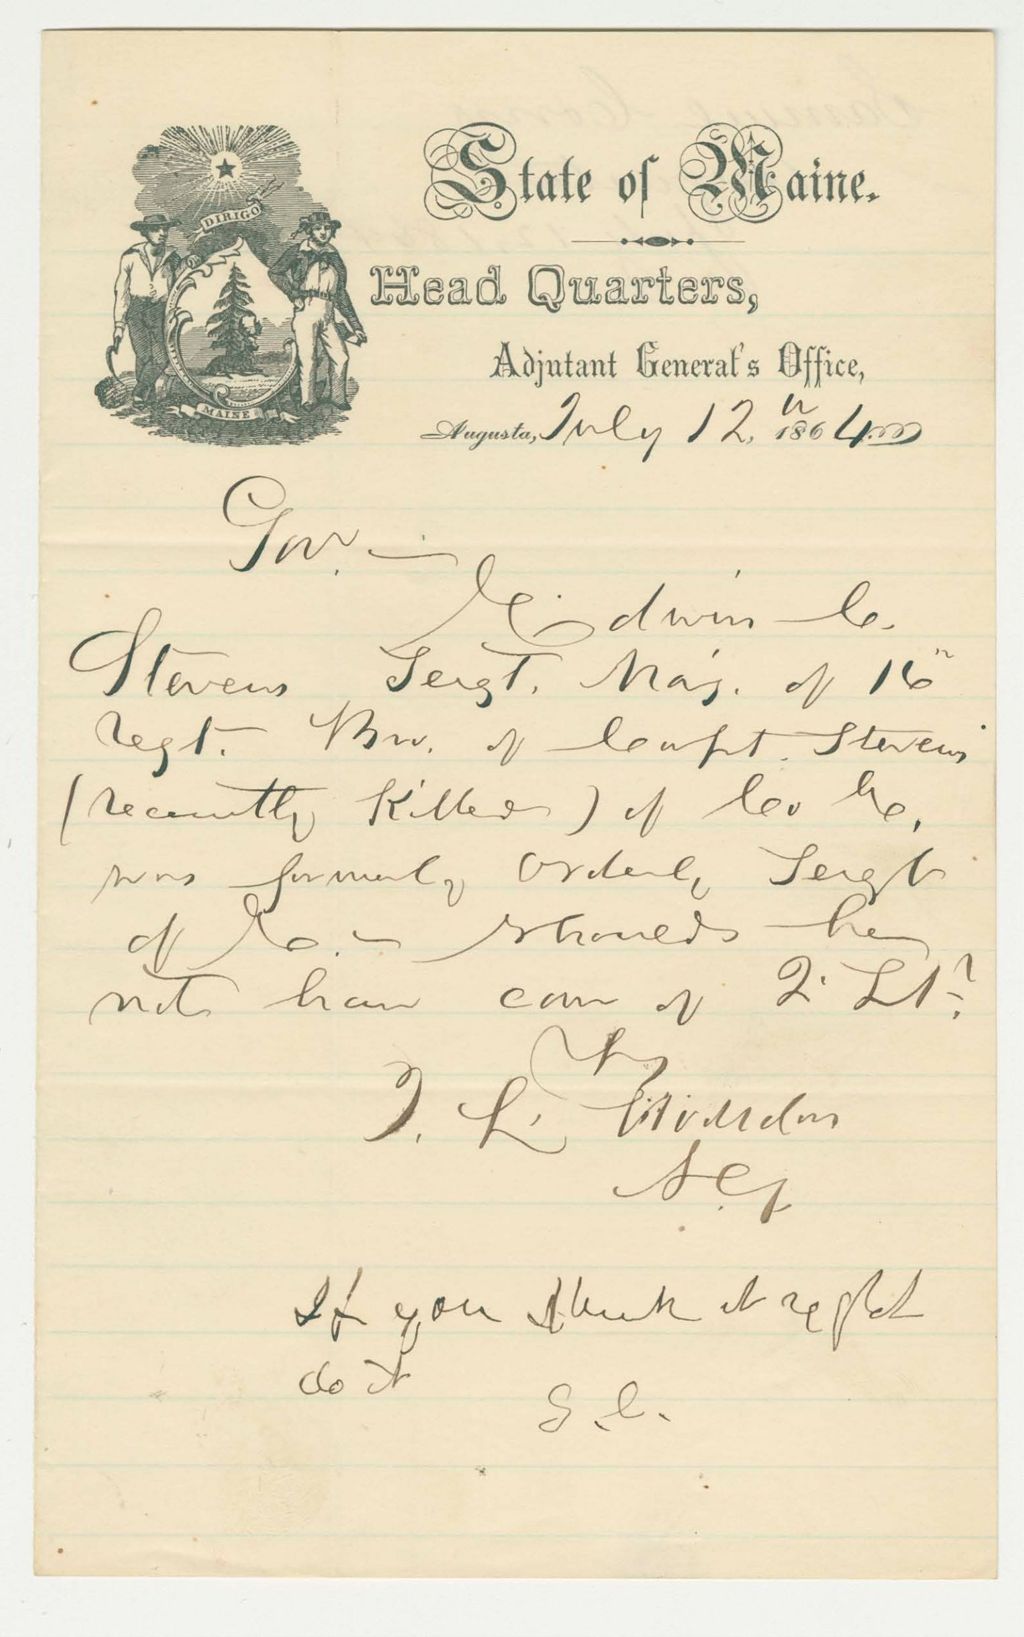 DIRIGO
MAINE
State of Maine.
Head Quarters,
Adjutant General's Office,
Augusta, July 12, 1864
Gov. —
Edwin C.
Stevens Sergt. Maj. of 16"
regt. Bro. of Capt. Stevens
(recently killed) of Co K,
was formerly Orderly Sergt
of K. — Should he
not have com of 2. Lt?
J. L. Hodsdon
A G
If you think it right
do it
S. C.